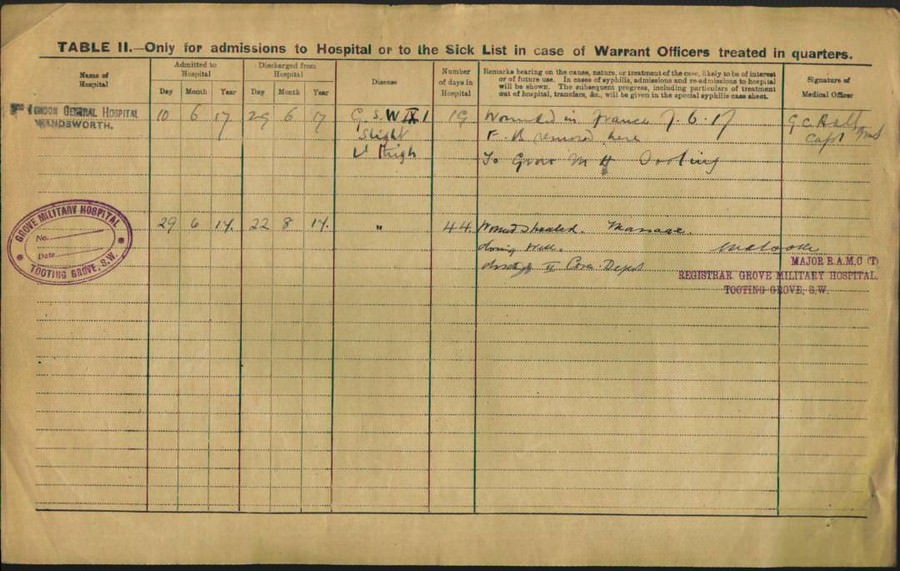 TABLE II.—Only for admissions to Hospital or to the Sick List in case of Warrant Officers treated in quarters.
Name of Hospital
Admitted to Hospital
Discharged from Hospital
Disease
Number of days in Hospital
Remarks bearing on the cause, nature, or treatment of the case, likely to be of interest
or of future use. In cases of syphilis, admissions and re-admissions to hospital
will be shown. The subsequent progress, including particulars of treatment
out of hospital, transfers, &c., will be given in the special syphilis case sheet.
Signature of Medical Officer
Day Month Year Day Month Year
LONDON GENERAL HOSPITAL
WANDSWORTH.
10 6 17 29 6 17 G.S.W. IX.1 19 Wounded in France 7.6.17 G.C.
Slight F.B. removed here Capt
thigh To Grove M H Tooting
GROVE MILITARY HOSPITAL
No.
Date
TOOTING GROVE, S.W.
29 6 17. 22 8 17. " 44. Wounds healed. Massage.
doing well.
II Con. Depot
MAJOR R.A.M.C (T)
REGISTRAR GROVE MILITARY HOSPITAL.
TOOTING GROVE, S.W.